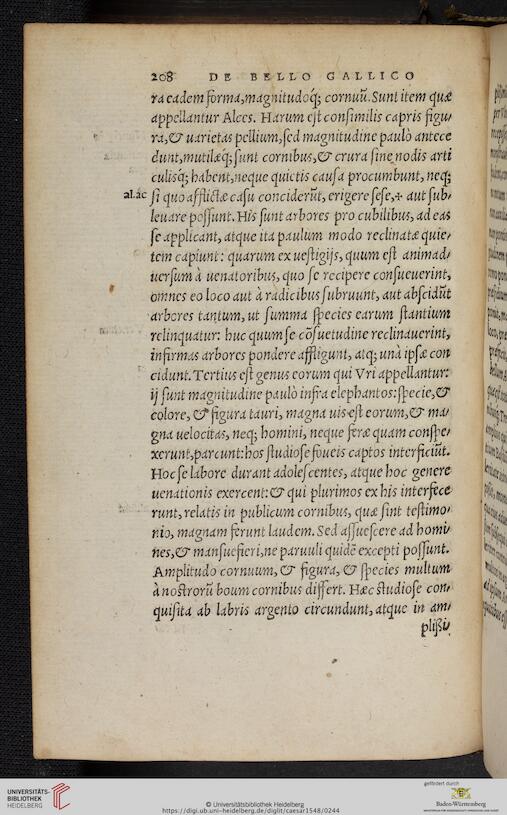 208 DE BELLO GALLICO
ra eadem forma, magnitudoq́; cornuū. Sunt item quæ
appellantur Alces. Harum eſt conſimilis capris figu/
ra, & uarietas pellium, ſed magnitudine paulò antece
dunt, mutilæq́; ſunt cornibus, & crura ſine nodis arti
culisq́; habent, neque quietis cauſa procumbunt, neq;
al. ac
ſi quo afflictæ caſu conciderūt, erigere ſeſe, + aut ſub/
leuare poſſunt. His ſunt arbores pro cubilibus, ad eas
ſe applicant, atque ita paulum modo reclinatæ quie/
tem capiunt: quarum ex ueſtigijs, quum eſt animad/
uerſum à uenatoribus, quo ſe recipere conſueuerint,
omnes eo loco aut à radicibus ſubruunt, aut abſcidūt
arbores tantum, ut ſumma ſpecies earum ſtantium
relinquatur: huc quum ſe cōſuetudine reclinauerint,
infirmas arbores pondere affligunt, atq; unà ipſæ con
cidunt. Tertius eſt genus eorum qui Vri appellantur:
ij ſunt magnitudine paulò infra elephantos: ſpecie, &
colore, & figura tauri, magna uis eſt eorum, & ma/
gna uelocitas, neq; homini, neque feræ quam conſpe/
xerunt, parcunt: hos ſtudioſe foueis captos interficiūt.
Hoc ſe labore durant adoleſcentes, atque hoc genere
uenationis exercent: & qui plurimos ex his interfece
runt, relatis in publicum cornibus, quæ ſint teſtimo/
nio, magnam ferunt laudem. Sed aſſueſcere ad homi/
nes, & manſuefieri, ne paruuli quidē excepti poſſunt.
Amplitudo cornuum, & figura, & ſpecies multum
à noſtrorū boum cornibus differt. Hæc ſtudioſe con/
quiſita ab labris argento circundunt, atque in am/
pliſsi/
UNIVERSITÄTS-
BIBLIOTHEK
HEIDELBERG
© Universitätsbibliothek Heidelberg
https://digi.ub.uni-heidelberg.de/diglit/caesar1548/0244
gefördert durch
Baden-Württemberg